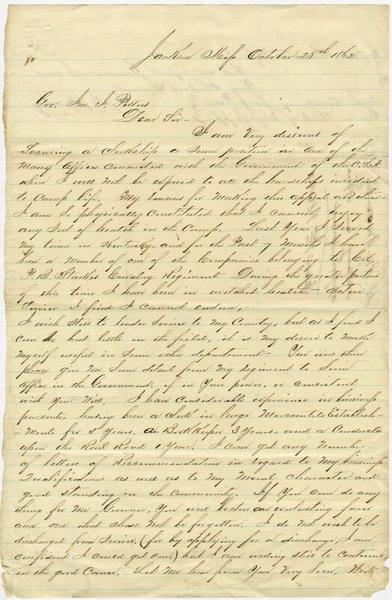 Jackson Miss October 28th 1862
Gov. Jno. J. Pettus
Dear Sir
I am Very desirous of
Securing a Clerkship or some position in one of the
Many Offices connected with the Government of the C.S.A.
where I will not be exposed to all the hardships incident
to Camp life. My reasons for making this appeal are these
I am so physically Constituted that I cannot enjoy
any sort of health in the Camp. Last Year I served
my time in Kentucky and for the Past 7 Months I have
been a Member of one of the Companies belonging to Col.
P. B. Starkes Cavalry Regiment. During the greater portion
of this time I have been in wretched health. Active
Service I find I cannot endure.
I wish still to render Service to My Country, but as I find I
can be but little in the field, it is my desire to make
Myself useful in some other department. You will then
please give me some detail from my Regiment to some
Office in the Government, if in Your power, or consistent
with Your Will. I have considerable experience in business
pursuits, having been a Clerk in large Mercantile Establish-
ments for 5 Years, as Book Keeper 3 Years and a Conductor
upon the Rail Road 1 Year. I can get any Number
of letters of Recommendation in regard to My business
Qualifications as well as to My Moral Character and
good standing in the Community. If You can do any
thing for Me Governor, You will bestow an everlasting favor
and one that shall not be forgotten. I do not wish to be
discharged from Service, (for by applying for a discharge, I am
confident I could get one,) but I am willing still to Continue
in the good Cause. Let Me hear from You Very Soon. With